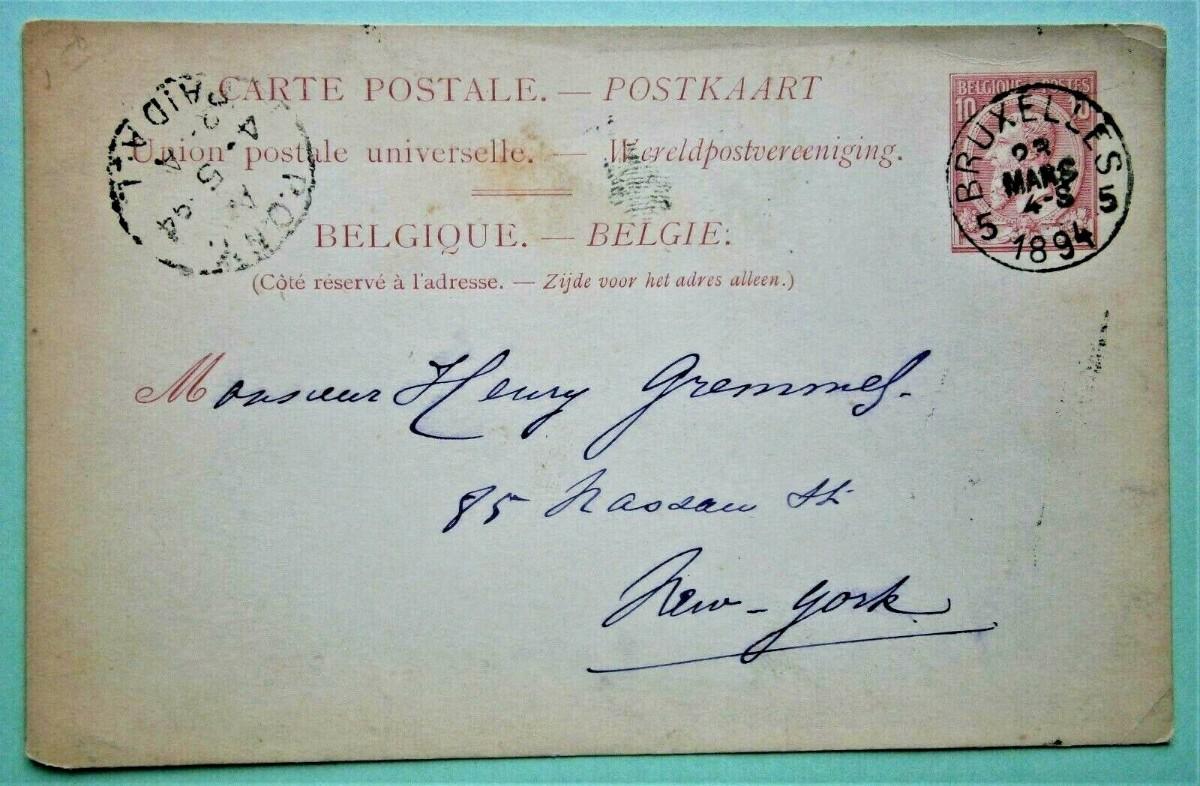 CARTE POSTALE. — POSTKAART
Union postale universelle. — Wereldpostvereeniging.
BELGIQUE. — BELGIE.
(Côté réservé à l'adresse. — Zijde voor het adres alleen.)
BELGIQUE POSTES
10 10
BRUXELLES
23
MARS
4-S
5 5
1894
PAID ALL
Monsieur Henry Gremmel.
85 Nassau St.
New-York